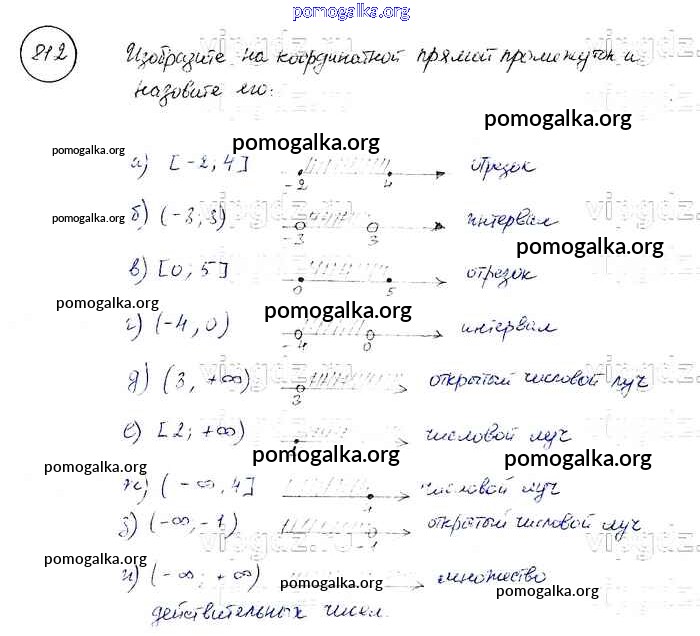 pomogalka.org
812 Изобразите на координатной прямой промежуток и
назовите его:
pomogalka.org
pomogalka.org
pomogalka.org
а) [-2; 4] -2 4 отрезок
б) (-3; 3) -3 3 интервал
pomogalka.org
pomogalka.org
в) [0; 5] 0 5 отрезок
pomogalka.org
pomogalka.org
г) (-4, 0) -4 0 интервал
virgdz.ru
д) (3, +∞) 3 открытый числовой луч
е) [2; +∞) числовой луч
pomogalka.org
pomogalka.org
pomogalka.org
ж) (-∞, 4] 4 числовой луч
з) (-∞, -1) -1 открытый числовой луч
virgdz.ru
pomogalka.org
и) (-∞; +∞) множество
pomogalka.org
pomogalka.org
действительных чисел.